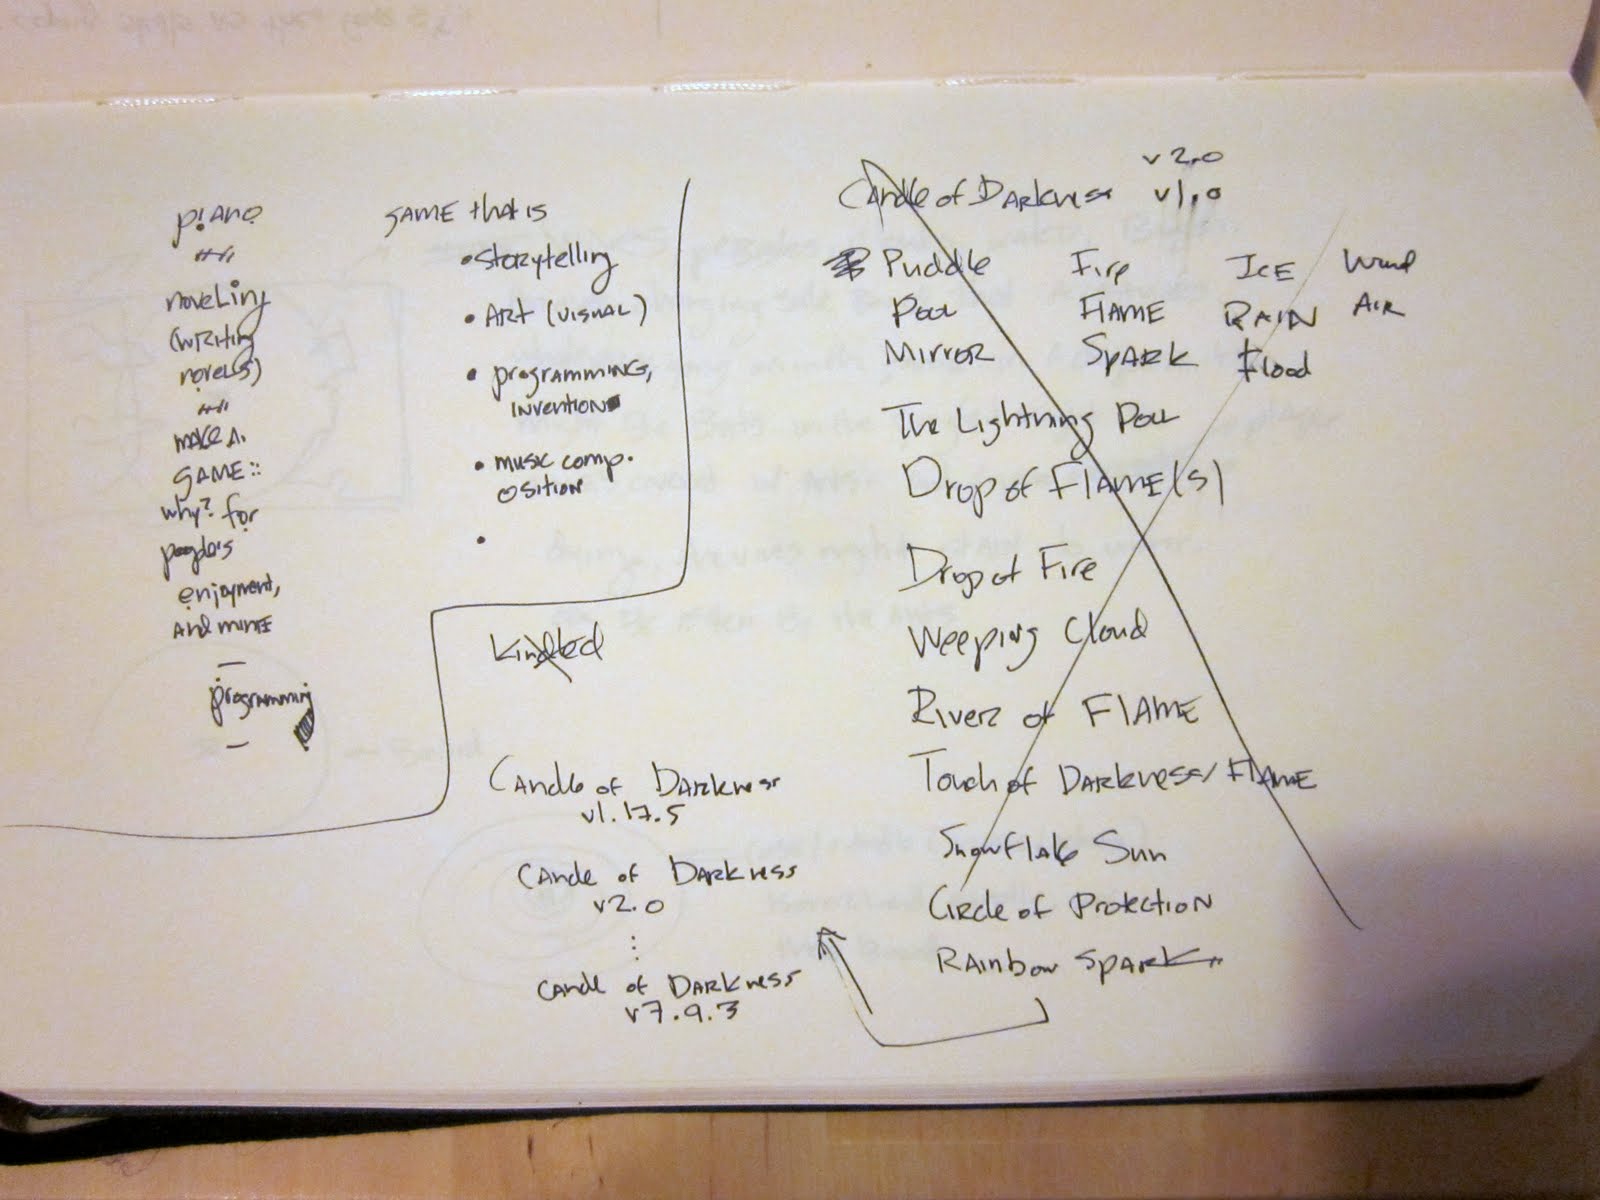 piano
noveling
(writing
novel(s)
make a
GAME::
why? for
people's
enjoyment,
and mine
—
programming
—
GAME that is
• storytelling
• ART (visual)
• programming,
invention
• music comp.
osition
•
Kindled
Candle of Darkness
v1.17.5
Candle of Darkness
v2.0
⋮
Candle of Darkness
v7.9.3
v2.0
Candle of Darkness v1.0
Puddle Fire ICE Wind
Pool FLAME RAIN AIR
Mirror SPARK Flood
The Lightning Pool
Drop of FLAME(S)
Drop of Fire
Weeping Cloud
River of FLAME
Touch of Darkness/FLAME
Snowflake Sun
Circle of Protection
Rainbow SPARK